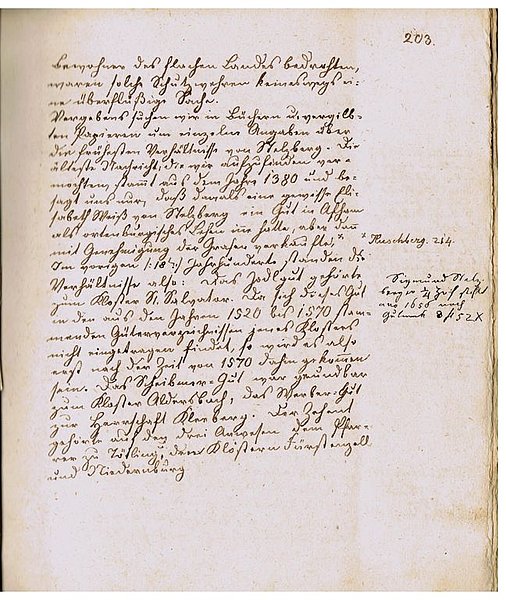 203.
bewohner des flachen Landes bedrohten,
waren solche Schutzwehren keineswegs ei-
ne überflüßige Sache.
Vergebens suchen wir in Büchern u. vergilb-
ten Papieren um einzelne Angaben über
die frühesten Verhältnisse von Stelzberg. Die
älteste Nachricht, die wir aufzufinden ver-
mochten, stammt aus dem Jahre 1380 und be-
sagt uns nur, daß damals eine gewisse Eli-
sabeth Weiß von Stelzberg ein Gut in
als ortenburgisches Lehen inne hatte, aber dann
mit Genehmigung der Grafen verkaufte.x
x Huschberg. 214.
Im vorigen (18t.) Jahrhunderte standen die
Verhältnisse also: Das Jodlgut gehörte
zum Kloster St. Salvator. Da sich dieses Gut
in den aus den Jahren 1520 bis 1570 stam-
menden Güterverzeichnissen jenes Klosters
nicht eingetragen findet, so wird es also
erst nach der Zeit von 1570 dahin gekommen
sein. Das Gut war grundbar
zum Kloster Aldersbach, das Weber-Gut
zur Herrschaft Kleeberg. Der Zehent
gehörte auf den drei Anwesen dem Pfar-
rer zu den Klöstern Fürstenzell
und Niedernburg
Sigmund Stelz-
berger
1656